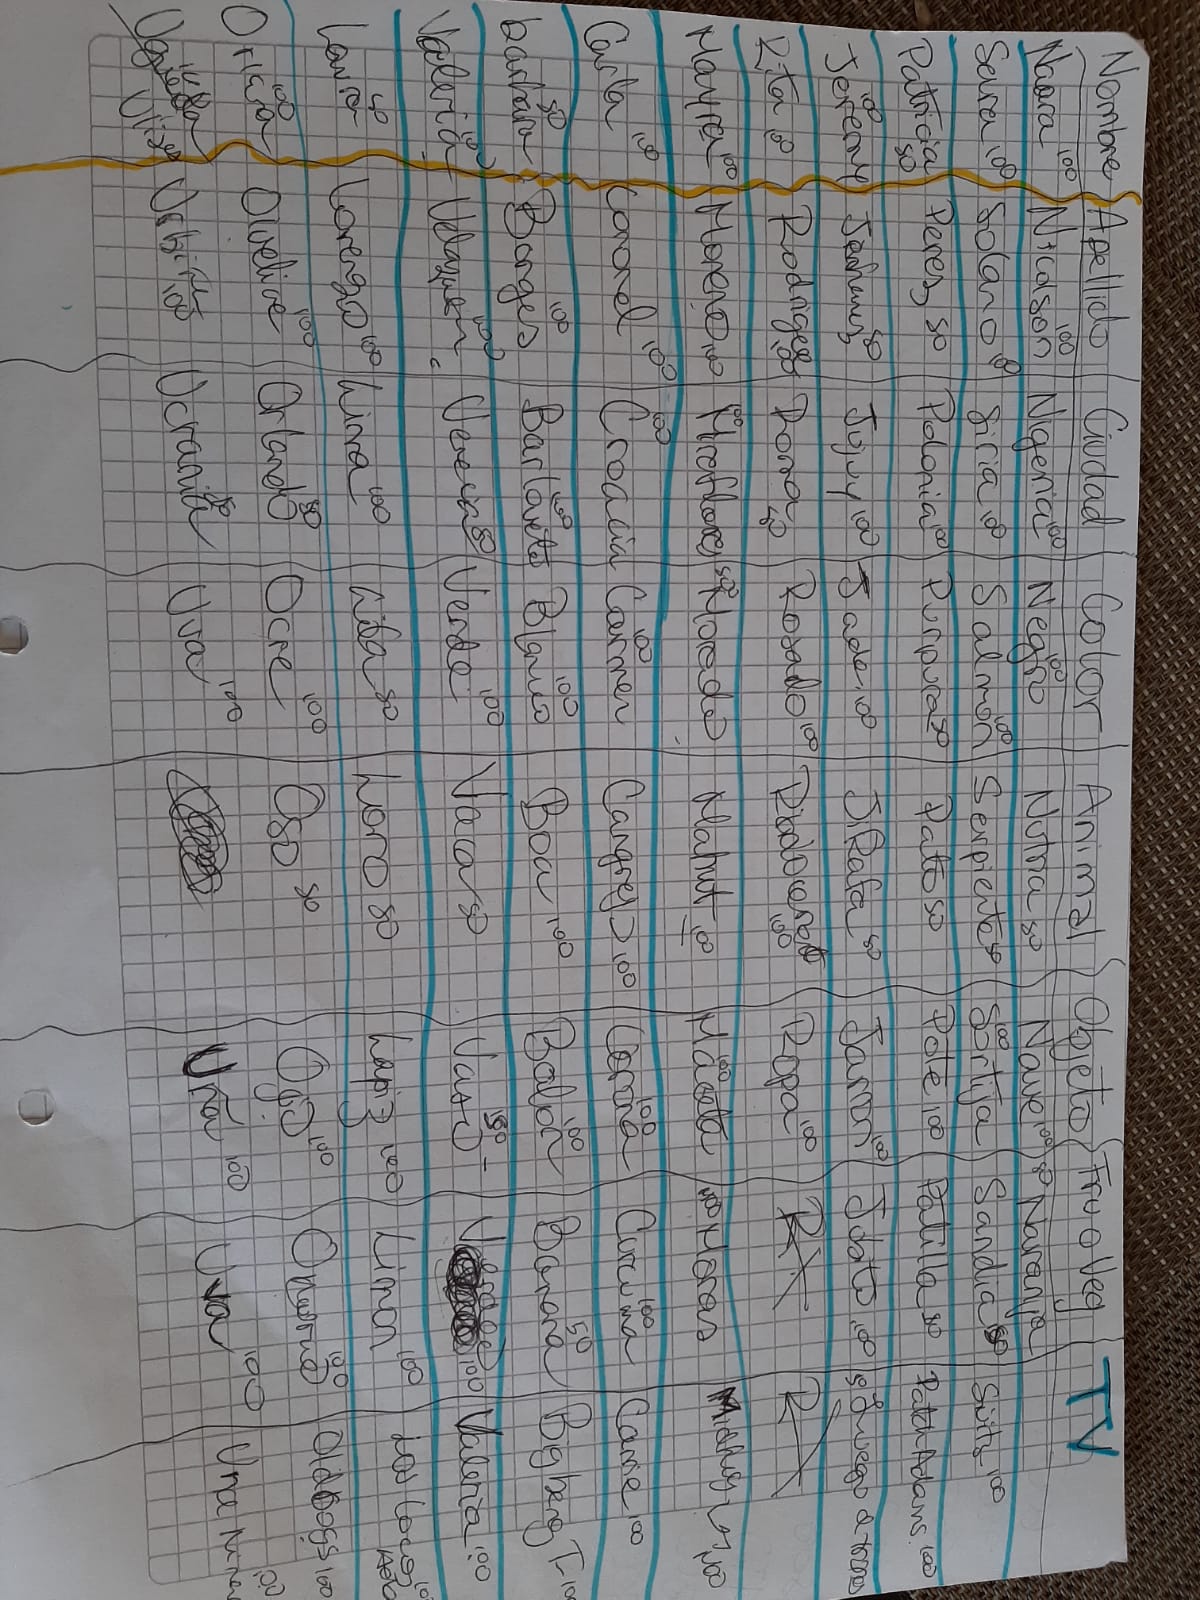 Nombre Apellido Ciudad Color Animal Objeto Fru o Veg TV
Naara 100 Nicolson 100 Nigeria 100 Negro 100 Nutria 50 Nave 100 50 Naranja
Sara 100 Solano 0 Siria 100 Salmon 100 Serpiente 50 Sortija 100 Sandia 50 Suits 100
Patricia 50 Perez 50 Polonia 100 Purpura 50 Pato 50 Pote 100 Patilla 50 Patch Adams. 100
Jeremy 100 50 Jujuy 100 Jade 100 JiRafa 50 Jamon 100 100 Juego d trones
Rita 100 Rodrigez 100 Roma 50 Rosado 100 100 Ropa 100 R R
Mayra 100 Moreno 100 Miraflores 100 50 Morado Mamut 100 Maceta 100 100 Moras 100
Carla 100 Coronel 100 Croacia 100 Carmen 100 Cangrejo 100 Corona 100 Curcuma 100 Carrie 100
barbara 50 Borges 100 100 Blanco 100 Boa 100 Balon 100 Banana 50 Big bang T 100
Valeria 100 100 Venecia 50 Verde 100 Vaca 50 Vaso 50 100 Valeria 100
Laura 50 Lorenzo 100 Lima 100 Lila 50 Loro 50 Lapiz 100 Limon 100 Los Locos
100 Orlando 50 Ocre 100 Oso 50 100 100 Old Dogs 100
100 Ulises 100 Ucrania 50 Uva 100 Uña 100 Uva 100 Una 100